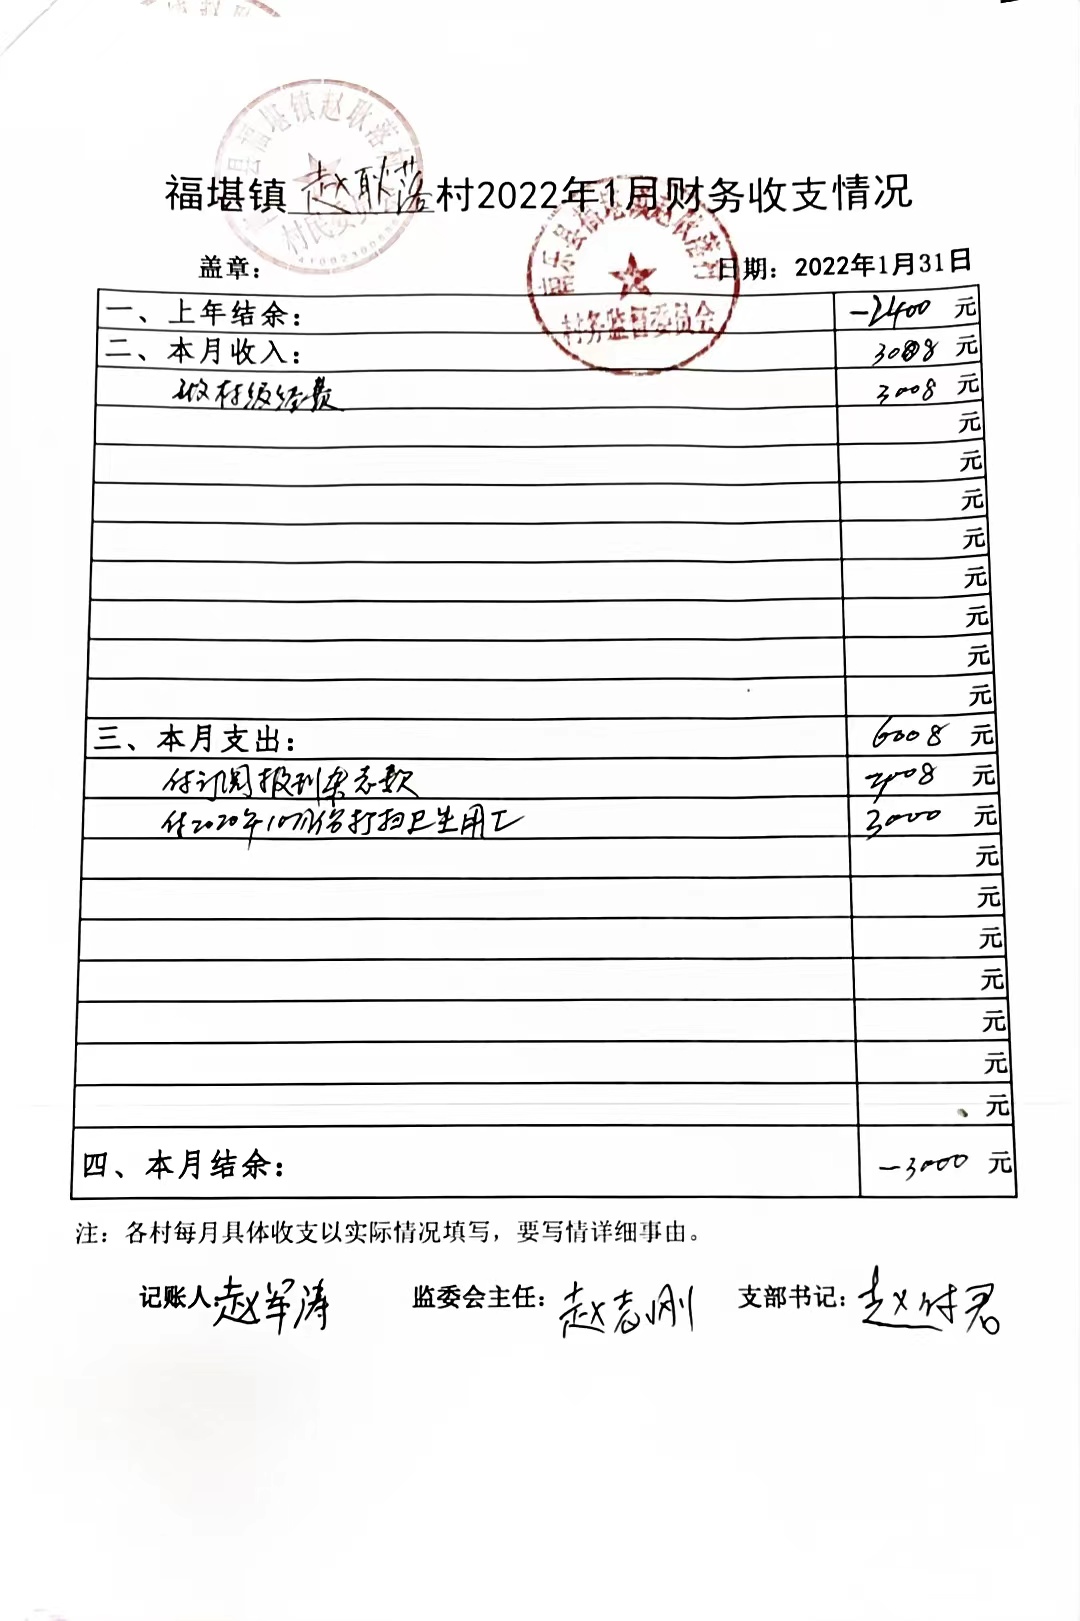 福堪镇赵耿落村2022年1月财务收支情况
盖章：
日期：2022年1月31日
一、上年结余： -2400 元
二、本月收入： 3008 元
收村级经费 3008 元
元
元
元
元
元
元
元
元
三、本月支出： 6008 元
付订阅报刊杂志款 3008 元
付2020年10月份打扫卫生用工 3000 元
元
元
元
元
元
元
元
四、本月结余： -3000 元
注：各村每月具体收支以实际情况填写，要写情详细事由。
记账人：赵军涛 监委会主任：赵志刚 支部书记：赵付君
村民委员会
南乐县福堪镇赵耿落村
村务监督委员会